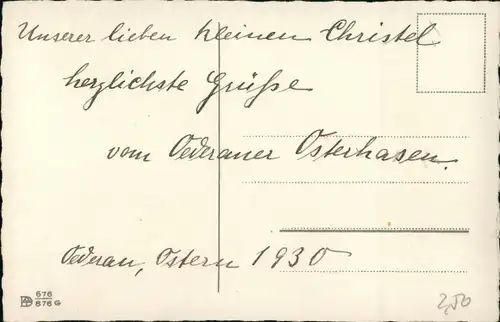 Unserer lieben kleinen Christel
herzlichste Grüße
vom Oederaner Osterhasen.
Oederau, Ostern 1930
676
676 G
2,50